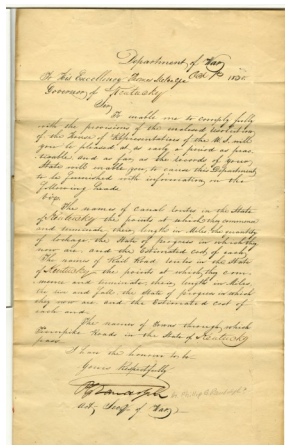 Department of War
Oct 1830
To His Excellency Thomas Metcalfe
Governor of Kentucky
Sir,
To enable me to comply fully
with the provisions of the enclosed resolution
of the House of Representatives of the U.S. will
you be pleased, at as early a period as prac-
ticable and as far, as the records of your
State will enable you, to cause this Department
to be furnished with information, on the
following heads.
The names of Canal routes in the State
of Kentucky the points at which they commence
and terminate, their length in Miles, the quantity
of lockage, the State of progress in which they
now are and the Estimated cost of each.
The names of Rail Road routes in the State
of Kentucky, the points at which they com-
mence and terminate, their length in Miles,
the State of progress in which
they now are and the Estimated cost of
each and
The names of through, which
Turnpike Roads in the State of Kentucky
pass.
I have the honour to be
Yours Respectfully
P G Randolph
Act. Secy of War